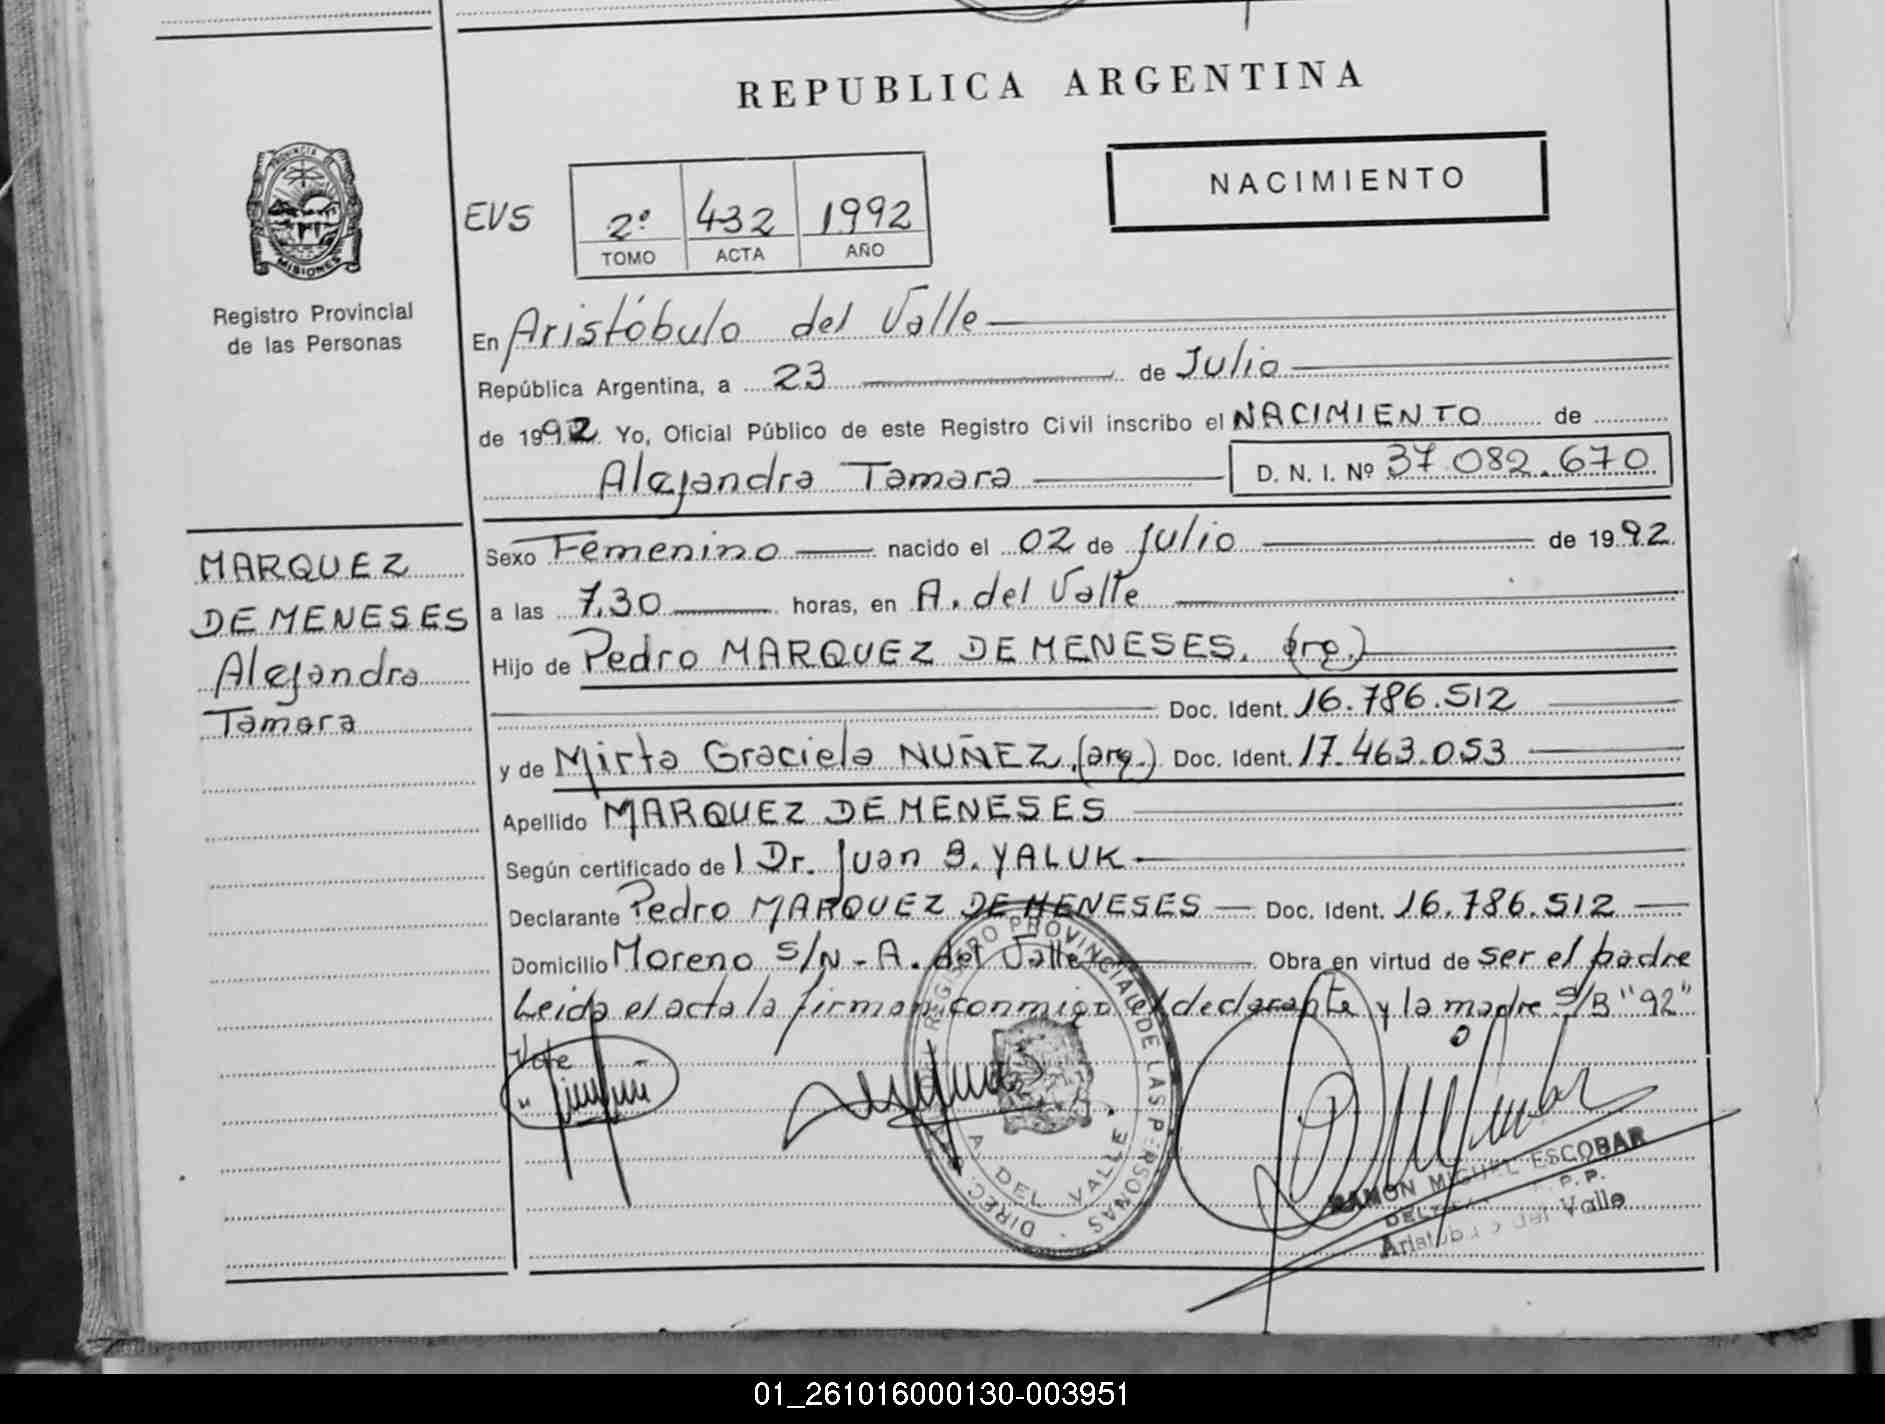 REPUBLICA ARGENTINA
PROVINCIA DE
MISIONES
Registro Provincial
de las Personas
NACIMIENTO
EVS
2º 432 1992
TOMO ACTA AÑO
En Aristóbulo del Valle
República Argentina, a 23 de Julio
de 1992 Yo, Oficial Público de este Registro Civil inscribo el NACIMIENTO de
Alejandra Tamara D. N. I. Nº 37.082.670
MARQUEZ
DE MENESES
Alejandra
Tamara
Sexo Femenino nacido el 02 de Julio de 1992.
a las 7.30 horas, en A. del Valle
Hijo de Pedro MARQUEZ DE MENESES. (arg.)
Doc. Ident. 16.786.512
y de Mirta Graciela NUÑEZ. (arg.) Doc. Ident. 17.463.053
Apellido MARQUEZ DE MENESES
Según certificado de l Dr. Juan B. YALUK
Declarante Pedro MARQUEZ DE MENESES Doc. Ident. 16.786.512
Domicilio Moreno S/N - A. del Valle Obra en virtud de ser el padre
Leida el acta la firman conmigo el declarante y la madre S/B "92"
Vale
DIREC. REGISTRO PROVINCIAL DE LAS PERSONAS
A. DEL VALLE
RAMON MIGUEL ESCOBAR
P.P.
Aristobulo del Valle
01_261016000130-003951